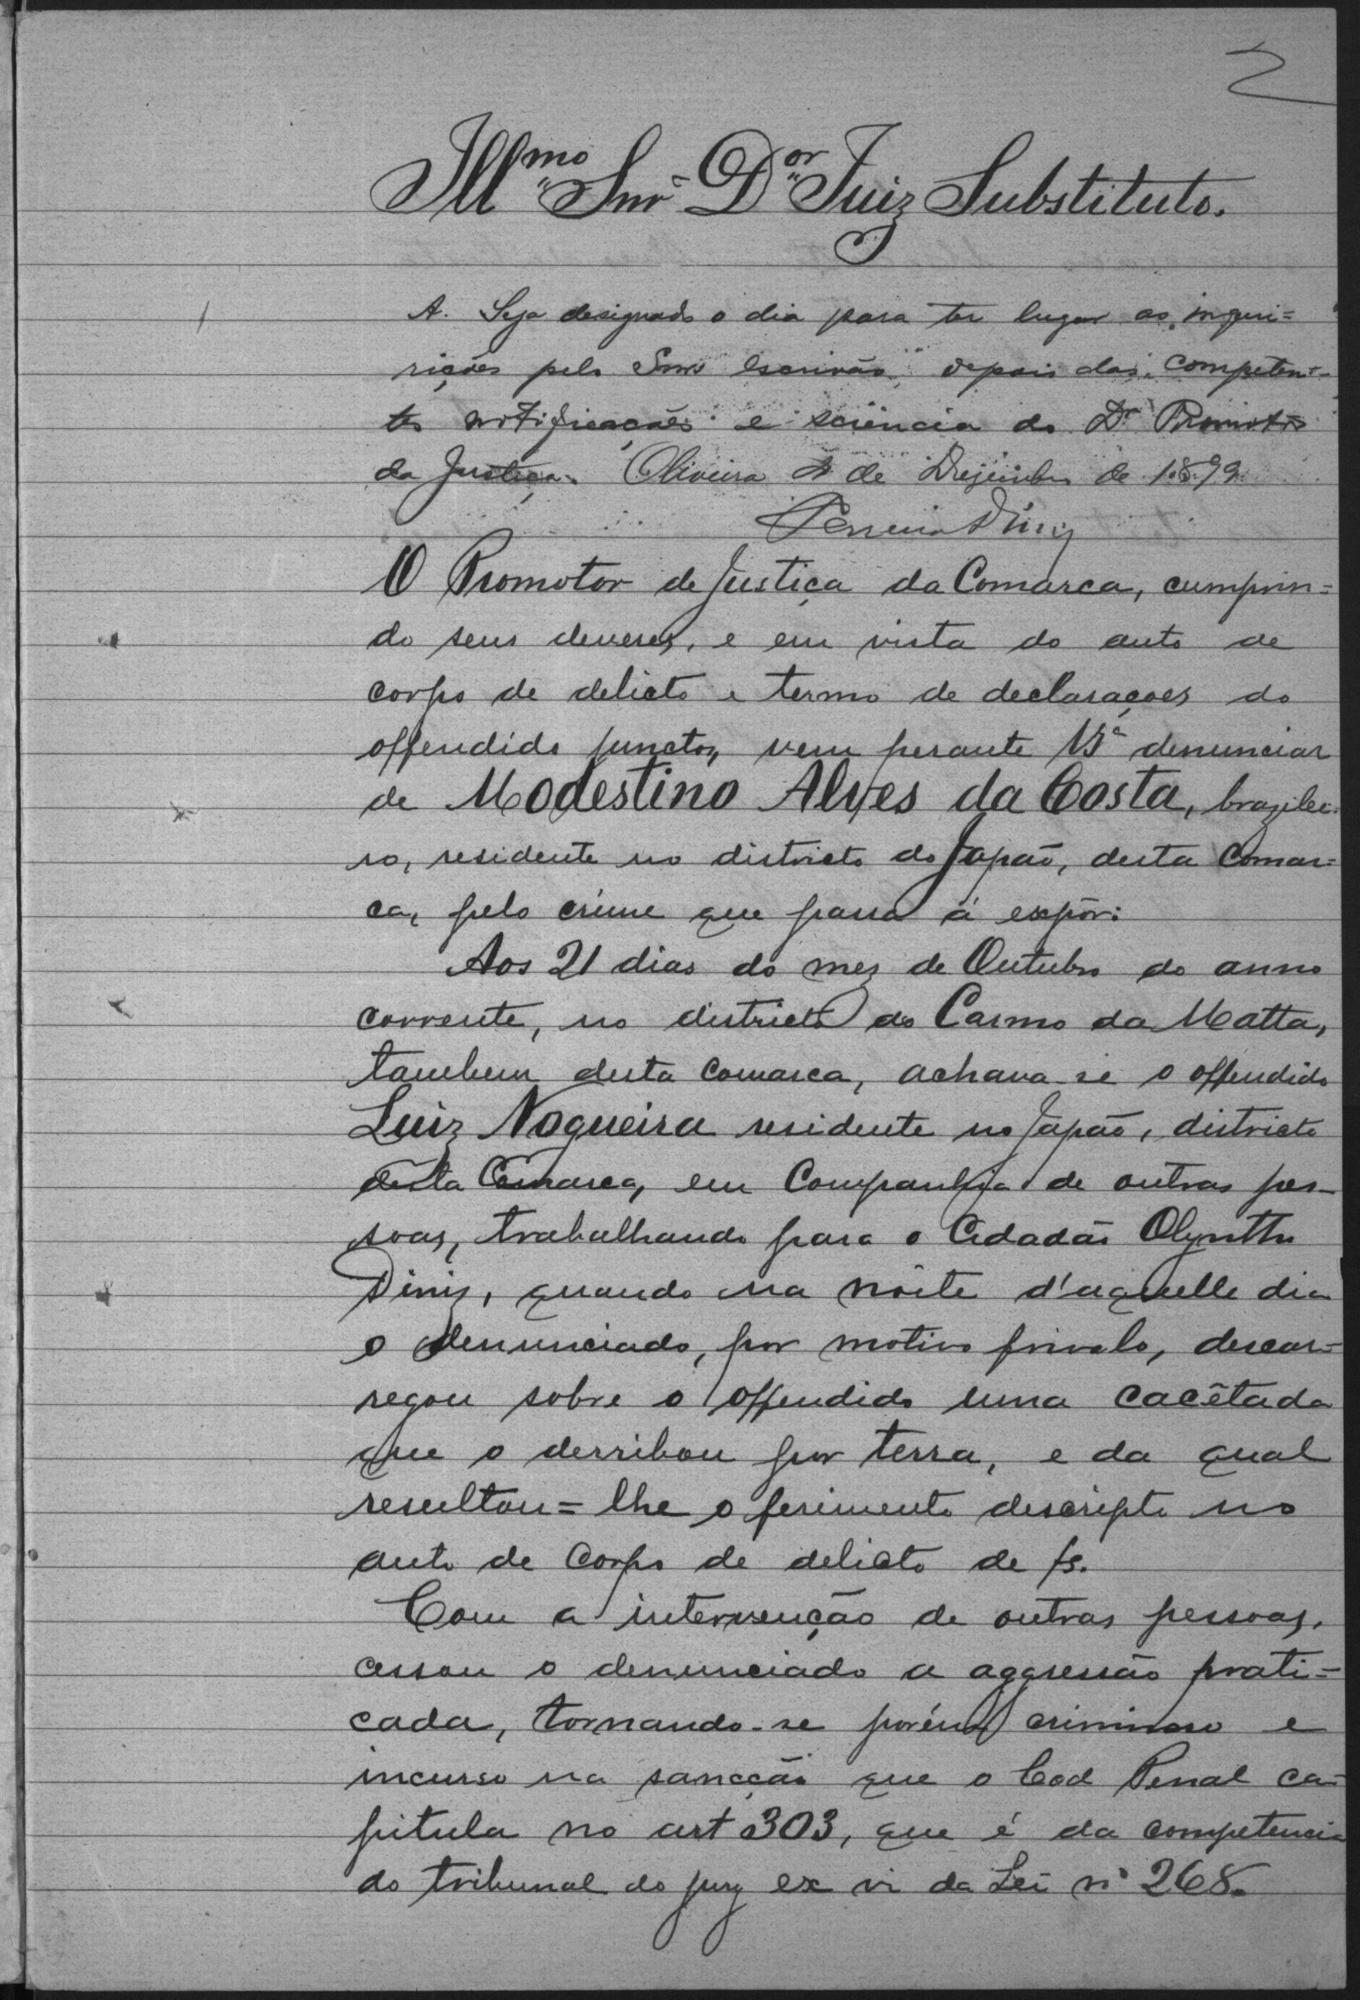 2
Illmo Snr Dor Juiz Substituto.
A. Seja designado o dia para ter lugar as inqui=
rições pelo Snr escrivão depois das competen-
tes notificações e sciencia do Dr Promotor
da Justiça. Oliveira de Dezembro de 1899
Ferreira Diniz
O Promotor de Justiça da Comarca, cumprin=
do seus deveres, e em vista do auto de
corpo de delicto e termo de declarações do
offendido junctos, vem perante VSª denunciar
de Modestino Alves da Costa, brazilei-
ro, residente no districto do Japão, desta Comar=
ca, pelo crime que passa á expôr:
Aos 21 dias do mez de Outubro do anno
corrente, no districto do Carmo da Matta,
tambem desta comarca, achava-se o offendido
Luiz Nogueira residente no Japão, districto
desta Comarca, em Companhia de outras pes-
soas, trabalhando para o Cidadão Olyntho
Diniz, quando na noite d'aquelle dia
o denunciado, por motivo frivolo, descar=
regou sobre o offendido uma cacêtada
que o derribou por terra, e da qual
resultou=lhe o ferimento descripto no
auto de corpo de delicto de fs.
Com a intervenção de outras pessoas,
cessou o denunciado a aggressão prati=
cada, tornando-se porém criminoso e
incurso na sancção que o Cod Penal ca-
pitula no art 303, que é da competencia
do tribunal do jury ex vi da Lei nº 268.